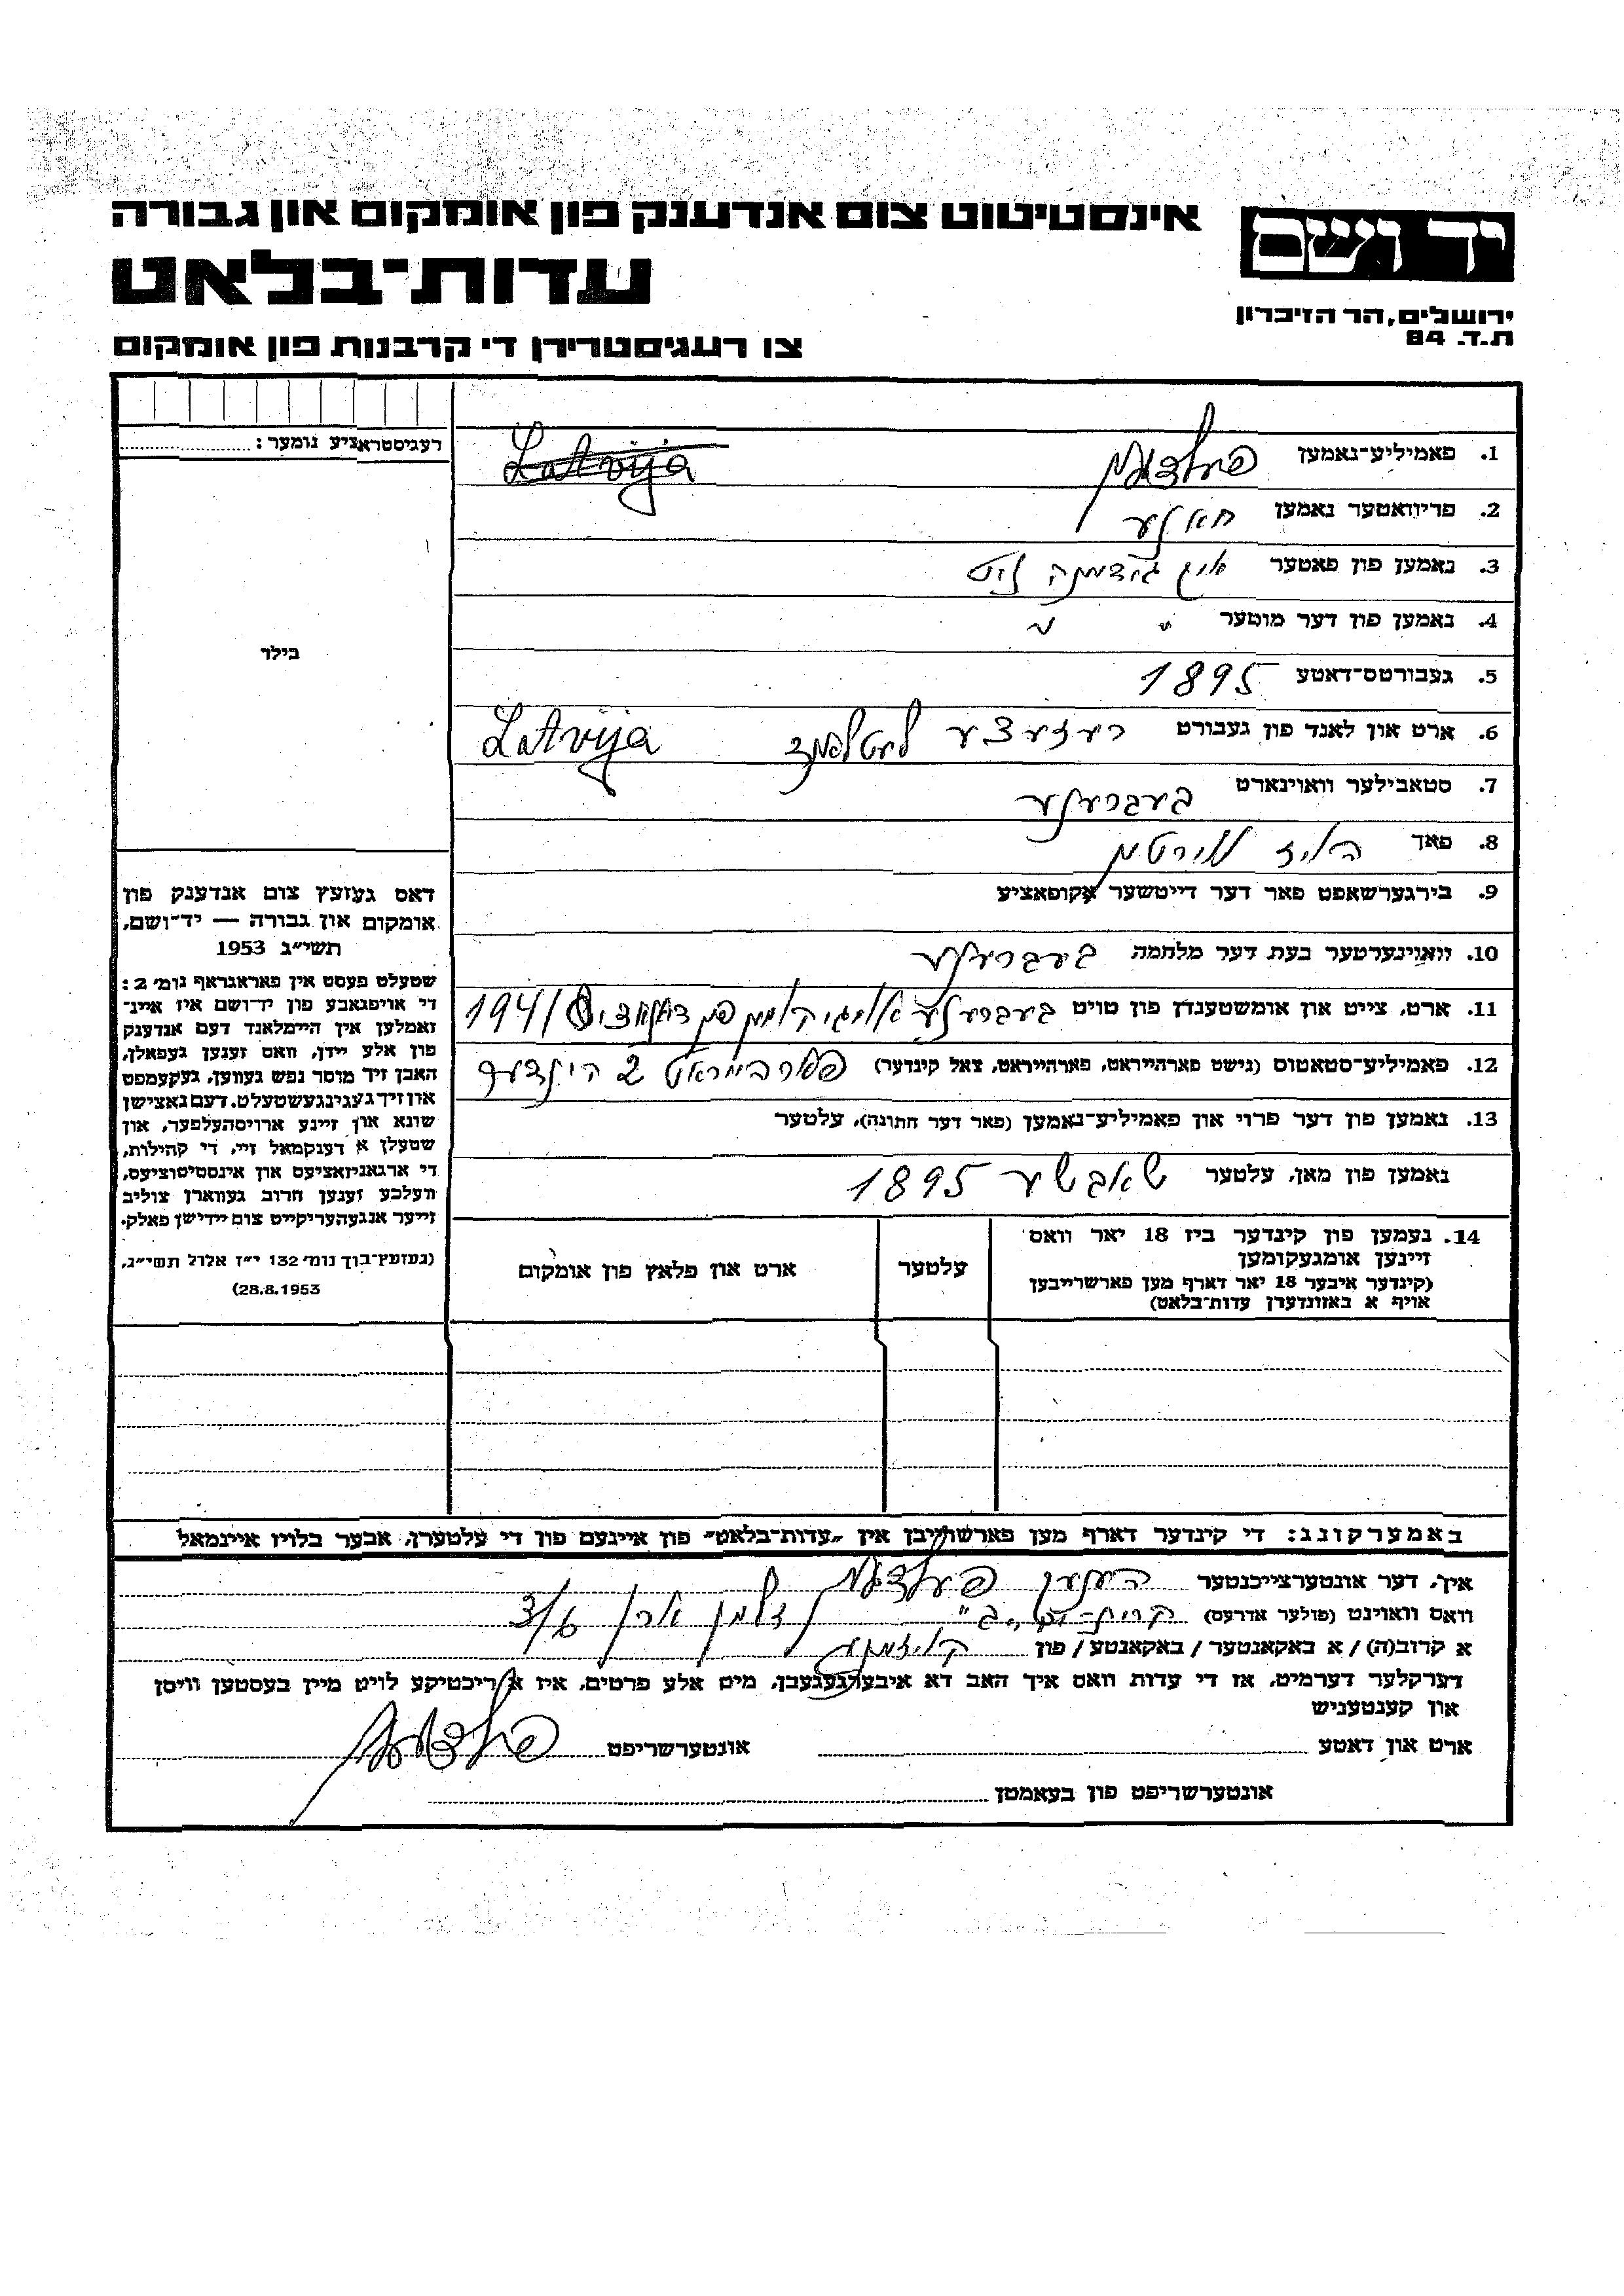 אינסטיטוט צום אנדענק פון אומקום און גבורה
יד ושם
עדות־בלאט
ירושלים, הר הזיכרון
ת.ד. 84
צו רעגיסטרירן די קרבנות פון אומקום
רעגיסטראציע נומער:
בילד
1. פאמיליע־נאמען פעלדמאן Latvija
2. פריוואטער נאמען חאלע
3. נאמען פון פאטער
4. נאמען פון דער מוטער " "
5. געבורטס־דאטע 1895
6. ארט און לאנד פון געבורט רעזעצע לעטלאנד Latvija
7. סטאבילער וואוינארט
8. פאך הויז ווירטין
9. בירגערשאפט פאר דער דייטשער אקופאציע
10. וואוינערטער בעת דער מלחמה
11. ארט, צייט און אומשטענדן פון טויט אומגיקומן פון 1941
12. פאמיליע־סטאטוס (נישט פארהייראט, פארהייראט, צאל קינדער) פארהייראט 2 קינדער
13. נאמען פון דער פרוי און פאמיליע־נאמען (פאר דער חתונה), עלטער
נאמען פון מאן, עלטער שאבשע 1895
14. נעמען פון קינדער ביז 18 יאר וואס
זיינען אומגעקומען
(קינדער איבער 18 יאר דארף מען פארשרייבען
אויף א באזונדערן עדות־בלאט)
עלטער
ארט און פלאץ פון אומקום
דאס געזעץ צום אנדענק פון
אומקום און גבורה — יד־ושם,
תשי״ג 1953
שטעלט פעסט אין פאראגראף נומ׳ 2:
די אויפגאבע פון יד־ושם איז איינ־
זאמלען אין היימלאנד דעם אנדענק
פון אלע יידן, וואס זענען געפאלן,
האבן זיך מוסר נפש געווען, געקעמפט
און זיך געגינגעשטעלט. דעם נאצישן
שונא און זיינע ארויסהעלפער, און
שטעלן א דענקמאל זיי, די קהילות,
די ארגאניזאציעס און אינסטיטוציעס,
וועלכע זענען חרוב געווארן צוליב
זייער אנגעהעריקייט צום יידישן פאלק.
(געזעץ־בוך נומ׳ 132 י״ז אלול תשי״ג,
28.8.1953)
באמערקונג: די קינדער דארף מען פארשרייבן אין „עדות־בלאט״ פון איינעם פון די עלטערן, אבער בלויז איינמאל
איך, דער אונטערצייכנטער פעלדמאן
וואס וואוינט (פולער אדרעס) קרית־ים „ב״ זלמן ארן
א קרוב(ה) / א באקאנטער / באקאנטע / פון קוזינקע
דערקלער דערמיט, אז די עדות וואס איך האב דא איבערגעגעבן, מיט אלע פרטים, איז א ריכטיקע לויט מיין בעסטען וויסן
און קענטעניש
ארט און דאטע אונטערשריפט פעלדמאן
אונטערשריפט פון בעאמטן